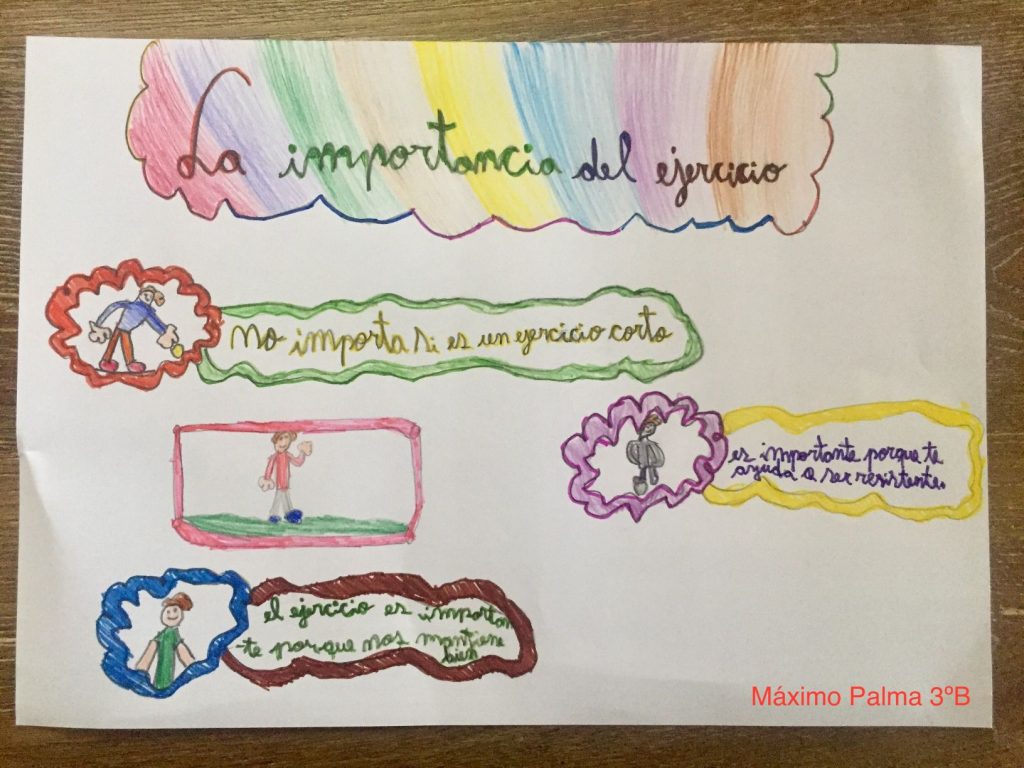 La importancia del ejercicio
No importa si es un ejercicio corto
es importante porque te
ayuda a ser resistente.
el ejercicio es importan
-te porque nos mantiene
bien
Máximo Palma 3ºB